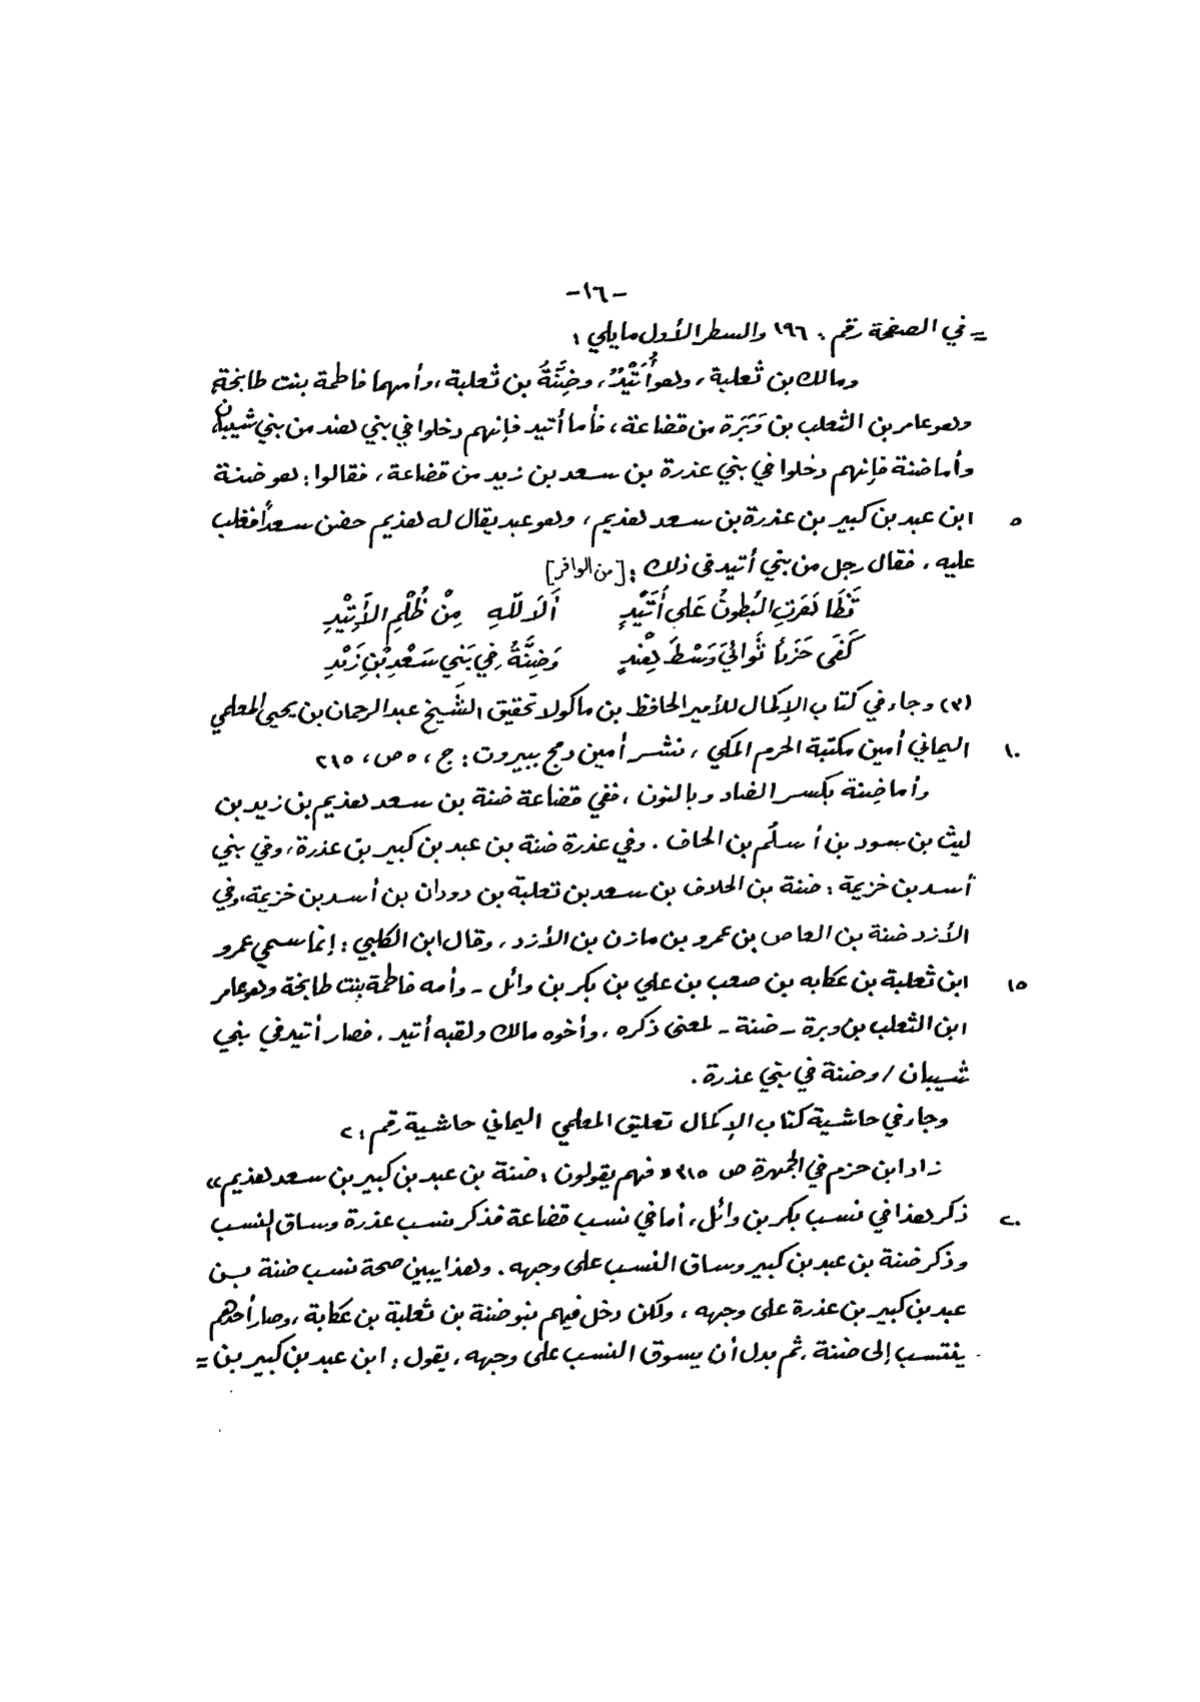 -١٦-
= في الصفحة رقم: ١٩٦ والسطر الأول مايلي:
ومالك بن ثعلبة، وهو أُتَيْدٌ، وضِنَّةُ بن ثعلبة، وأمهما فاطمة بنت طابخة،
وهو عامر بن الثعلب بن وَبَرَة من قضاعة، فأما أتيد فإنهم دخلوا في بني هند من بني شيبان،
وأما ضنة فإنهم دخلوا في بني عذرة بن سعد بن زيد من قضاعة، فقالوا: هو ضنة
٥ ابن عبد بن كبير بن عذرة بن سعد هذيم، وهو عبد يقال له هذيم حضن سعداً فغلب
عليه، فقال رجل من بني أتيد في ذلك: [من الوافر]
تَظَاهَرَتِ البُطونُ عَلى أُتَيْدٍ أَلَا لِلّهِ مِنْ ظُلْمِ الأُتَيْدِ
كَفَى حَزَناً ثَوَائِيَ وَسْطَ هِنْدٍ وَضِنَّةُ فِي بَنِي سَعْدِ بْنِ زَيْدِ
(٣) وجاء في كتاب الإكمال للأمير الحافظ بن ماكولا تحقيق الشَيخ عبد الرحمان بن يحيى المعلمي
١٠ اليماني أمين مكتبة الحرم المكي، نشر أمين دمج ببيروت: ج، ٥ ص، ٢١٥
وأما ضِنة بكسر الضاد وبالنون، ففي قضاعة ضنة بن سعد هذيم بن زيد بن
ليث بن سود بن أسلُم بن الحاف. وفي عذرة ضنة بن عبد بن كبير بن عذرة، وفي بني
أسد بن خزيمة: ضنة بن الحلاف بن سعد بن ثعلبة بن دودان بن أسد بن خزيمة، وفي
الأزد ضنة بن العاص بن عمرو بن مازن بن الأزد، وقال ابن الكلبي: إنما سمي عمرو
١٥ ابن ثعلبة بن عكابه بن صعب بن علي بن بكر بن وائل - وأمه فاطمة بنت طابخة وهو عامر
ابن الثعلب بن وبرة - ضنة - لمعنى ذكره، وأخوه مالك ولقبه أتيد، فصار أتيد في بني
شيبان / وضنة في بني عذرة.
وجاء في حاشية كتاب الإكمال تعليق المعلمي اليماني حاشية رقم: ٢
زاد ابن حزم في الجمهرة ص ٣١٥ « فهم يقولون: ضنة بن عبد بن كبير بن سعد هذيم »
٢٠ ذكر هذا في نسب بكر بن وائل، أما في نسب قضاعة فذكر نسب عذرة وساق النسب
وذكر ضنة بن عبد بن كبير وساق النسب على وجهه. وهذا يبين صحة نسب ضنة بن
عبد بن كبير بن عذرة على وجهه، ولكن دخل فيهم بنو ضنة بن ثعلبة بن عكابة، وصار أحدهم
ينتسب إلى ضنة، ثم بدل أن يسوق النسب على وجهه، يقول: ابن عبد بن كبير بن =